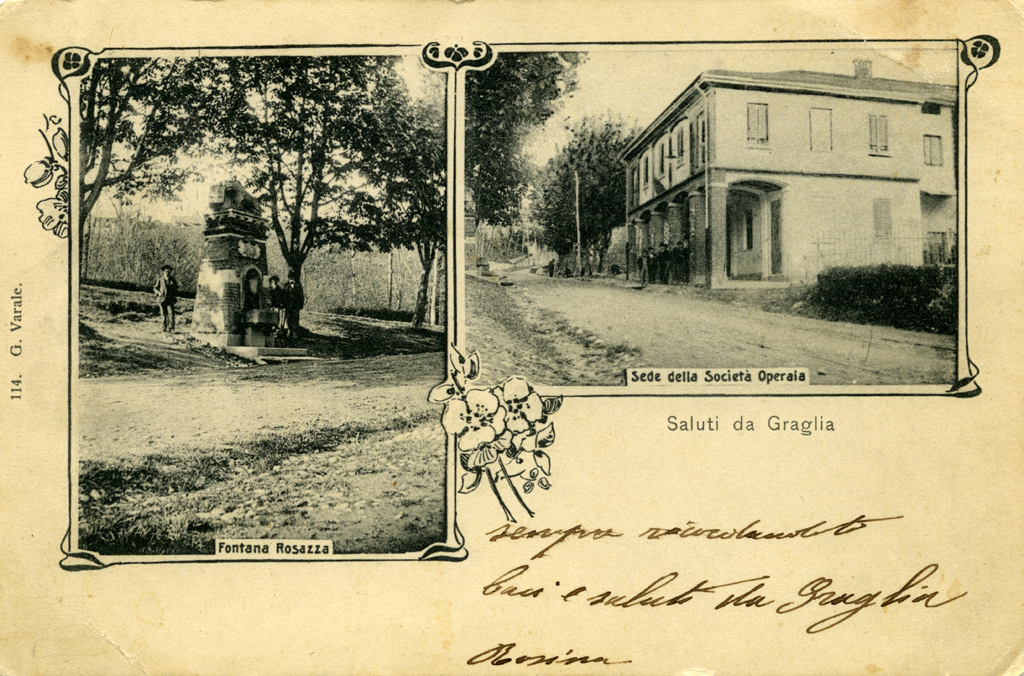 114. G. Varale.
Fontana Rosazza
Sede della Società Operaia
Saluti da Graglia
sempre ricordandoti
baci e saluti da Graglia
Rosina